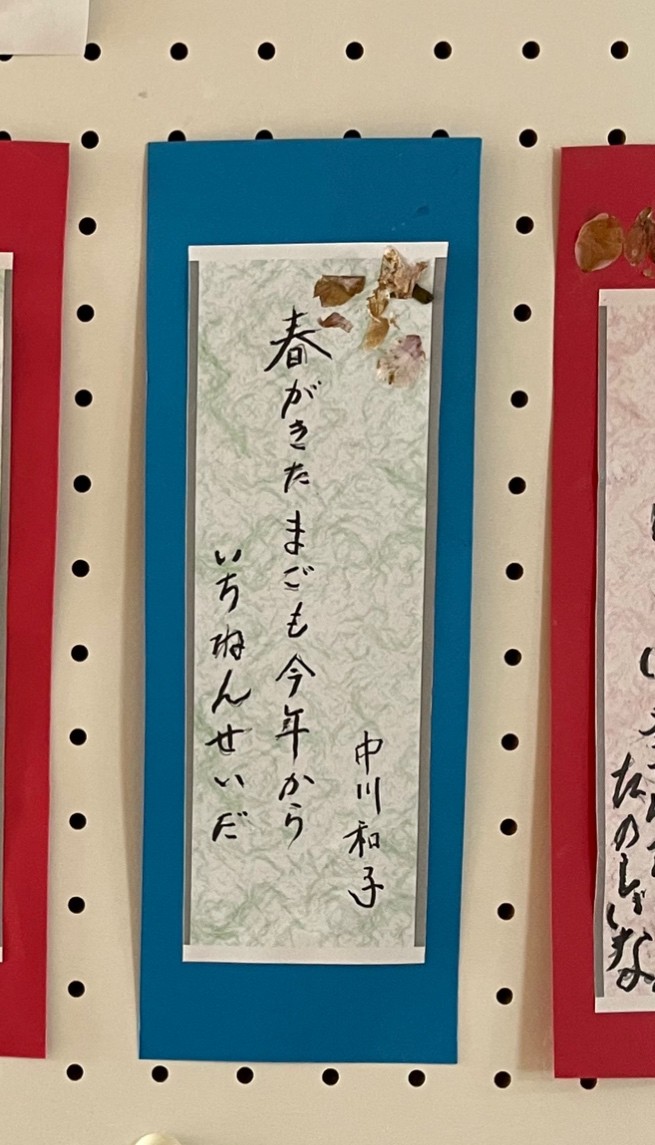 中川和子
春がきたまごも今年から
いちねんせいだ
たのしいな